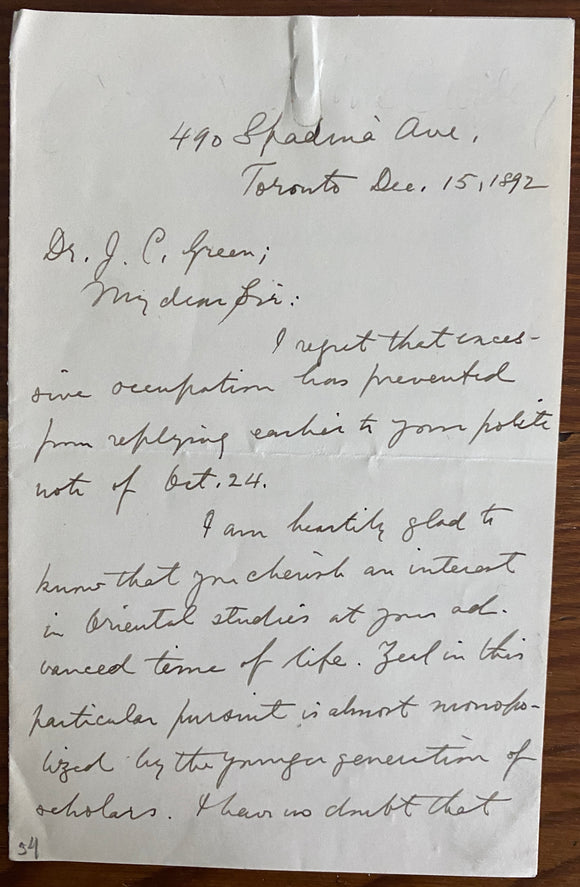 490 Spadina Ave.
Toronto Dec. 15, 1892
Dr. J. C. Green;
My dear Sir:
I regret that exces-
sive occupation has prevented
from replying earlier to your polite
note of Oct. 24.
I am heartily glad to
know that you cherish an interest
in Oriental studies at your ad-
vanced time of life. Zeal in this
particular pursuit is almost monopo-
lized by the younger generation of
scholars. I have no doubt that
54